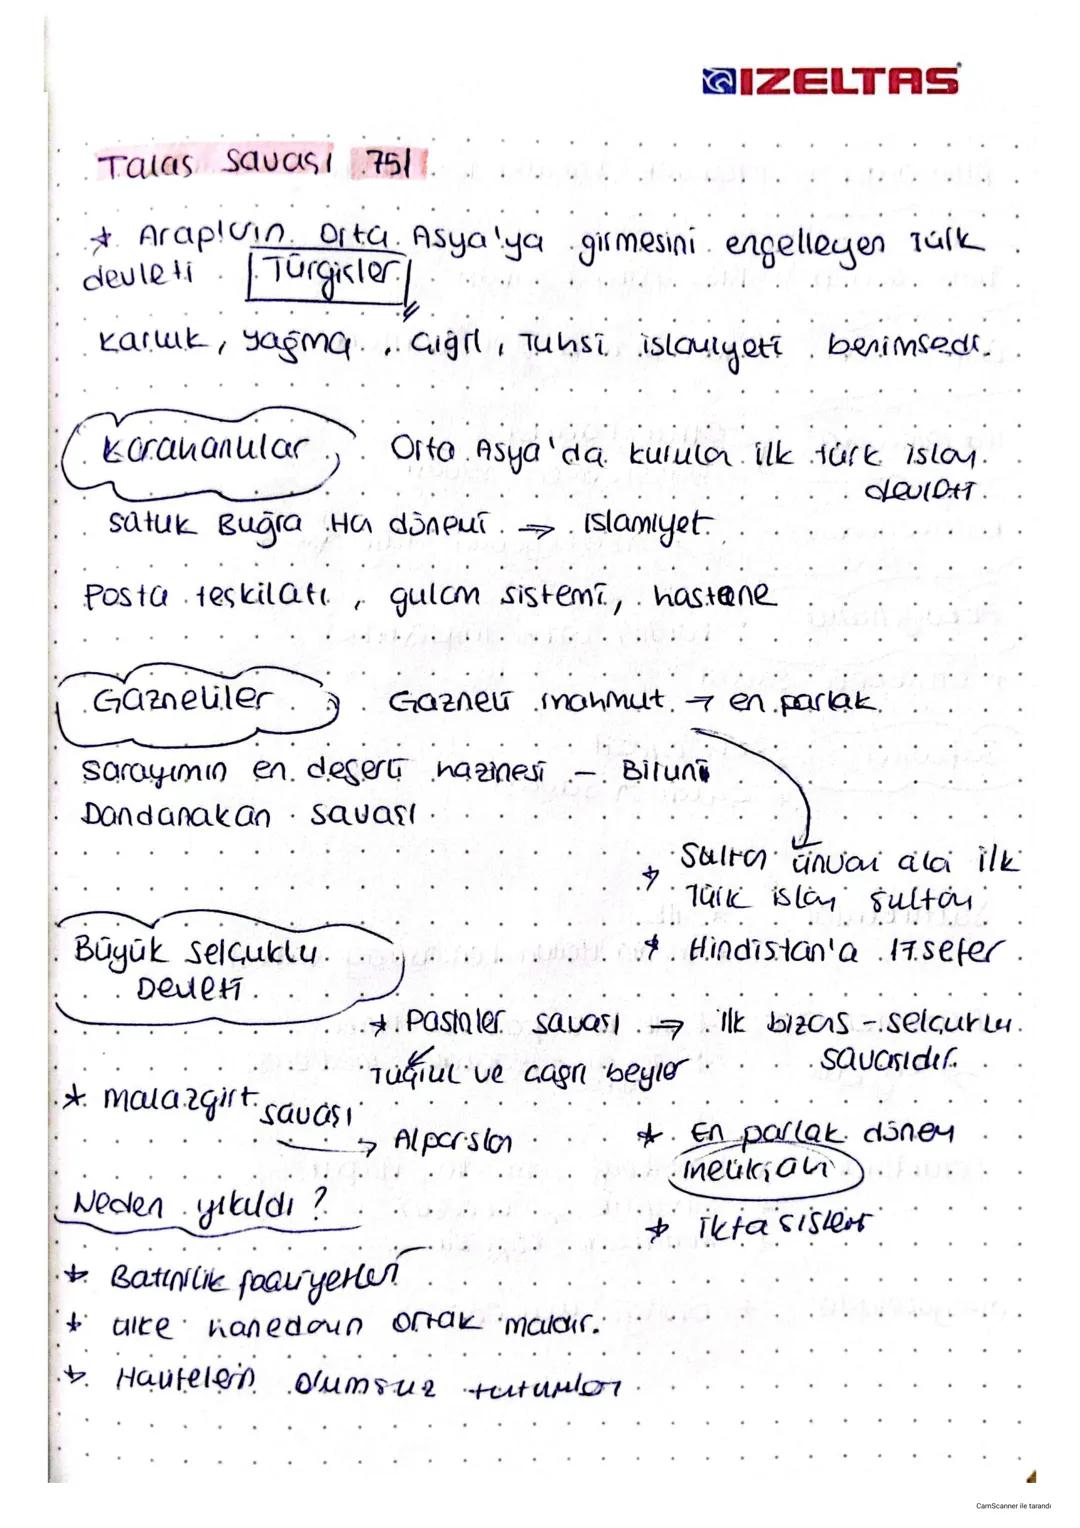 IZELTAS
Talas Savaşı 751
* Arapların Orta Asya'ya girmesini engelleyen Türk
devleti Türgişler
Karluk, Yağma, Çiğil, Tuhsi islamiyeti benimsedi.
Karahanlılar Orta Asya'da kurulan ilk türk islam
devleti
Satuk Buğra Han dönemi → islamiyet
Posta teşkilatı, gulam sistemi, hastane
Gazneliler Gazneli mahmut → en parlak
Sarayımın en değerli hazinesi - Biruni
Dandanakan savaşı
* Sultan ünvanı alan ilk
Türk islam sultanı
Büyük Selçuklu
Devleti
* Hindistan'a 17 sefer
* Pasinler savaşı → ilk bizans - selçuklu
savaşıdır.
Tuğrul ve çağrı beyler
* malazgirt savaşı
→ Alparslan
* En parlak dönem
melikşah
Neden yıkıldı?
* ikta sistemi
* Batınilik faaliyetleri
* ülke hanedanın ortak malıdır.
* Halifelerin olumsuz tutumları
CamScanner ile tarandı